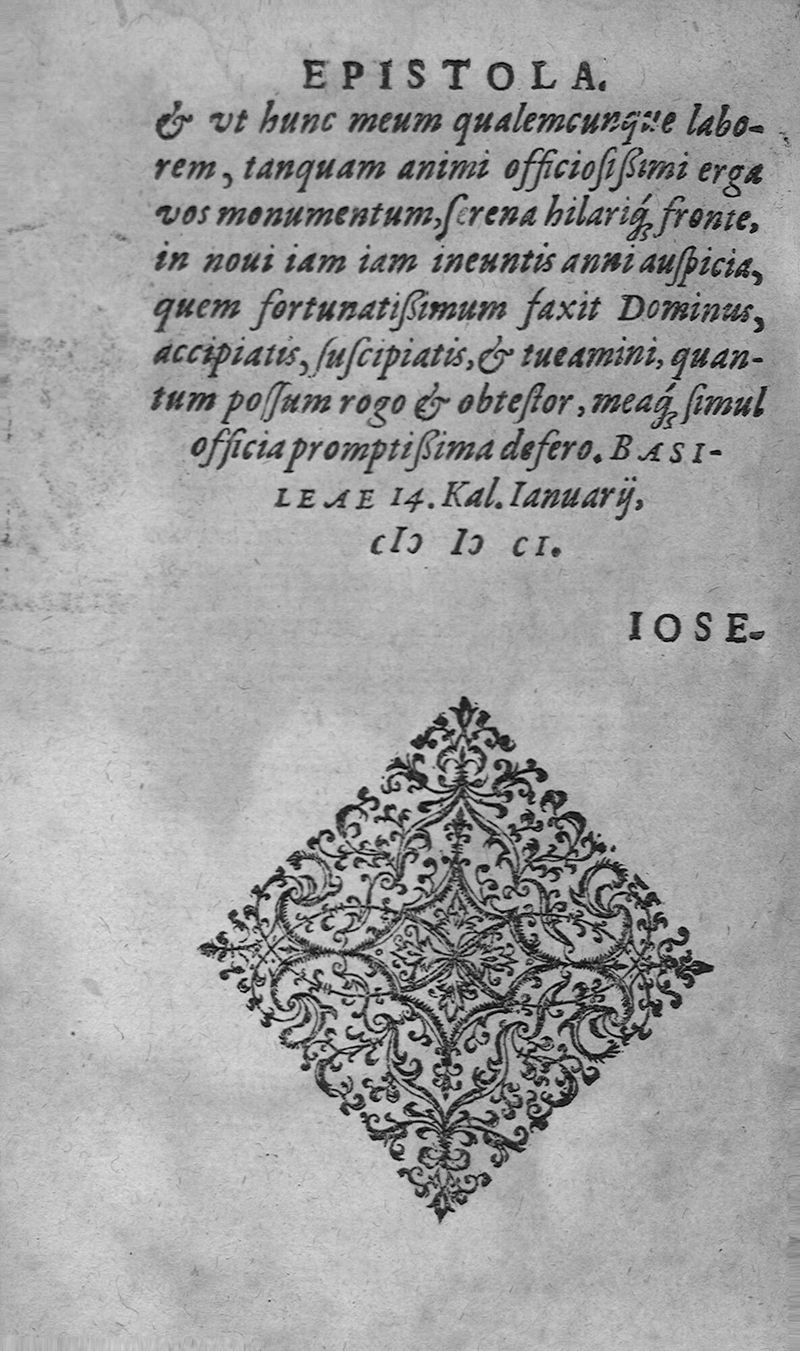 EPISTOLA.
& vt hunc meum qualemcunque labo-
rem, tanquam animi officiosißimi erga
vos monumentum, ſerena hilariq́ꝫ fronte,
in noui iam iam ineuntis anni auſpicia,
quem fortunatißimum faxit Dominus,
accipiatis, ſuſcipiatis, & tueamini, quan-
tum poſſum rogo & obteſtor, meaq́ꝫ ſimul
officia promptißima defero. BASI-
LEAE 14. Kal. Ianuarij,
cIↄ Iↄ cI.
IOSE-